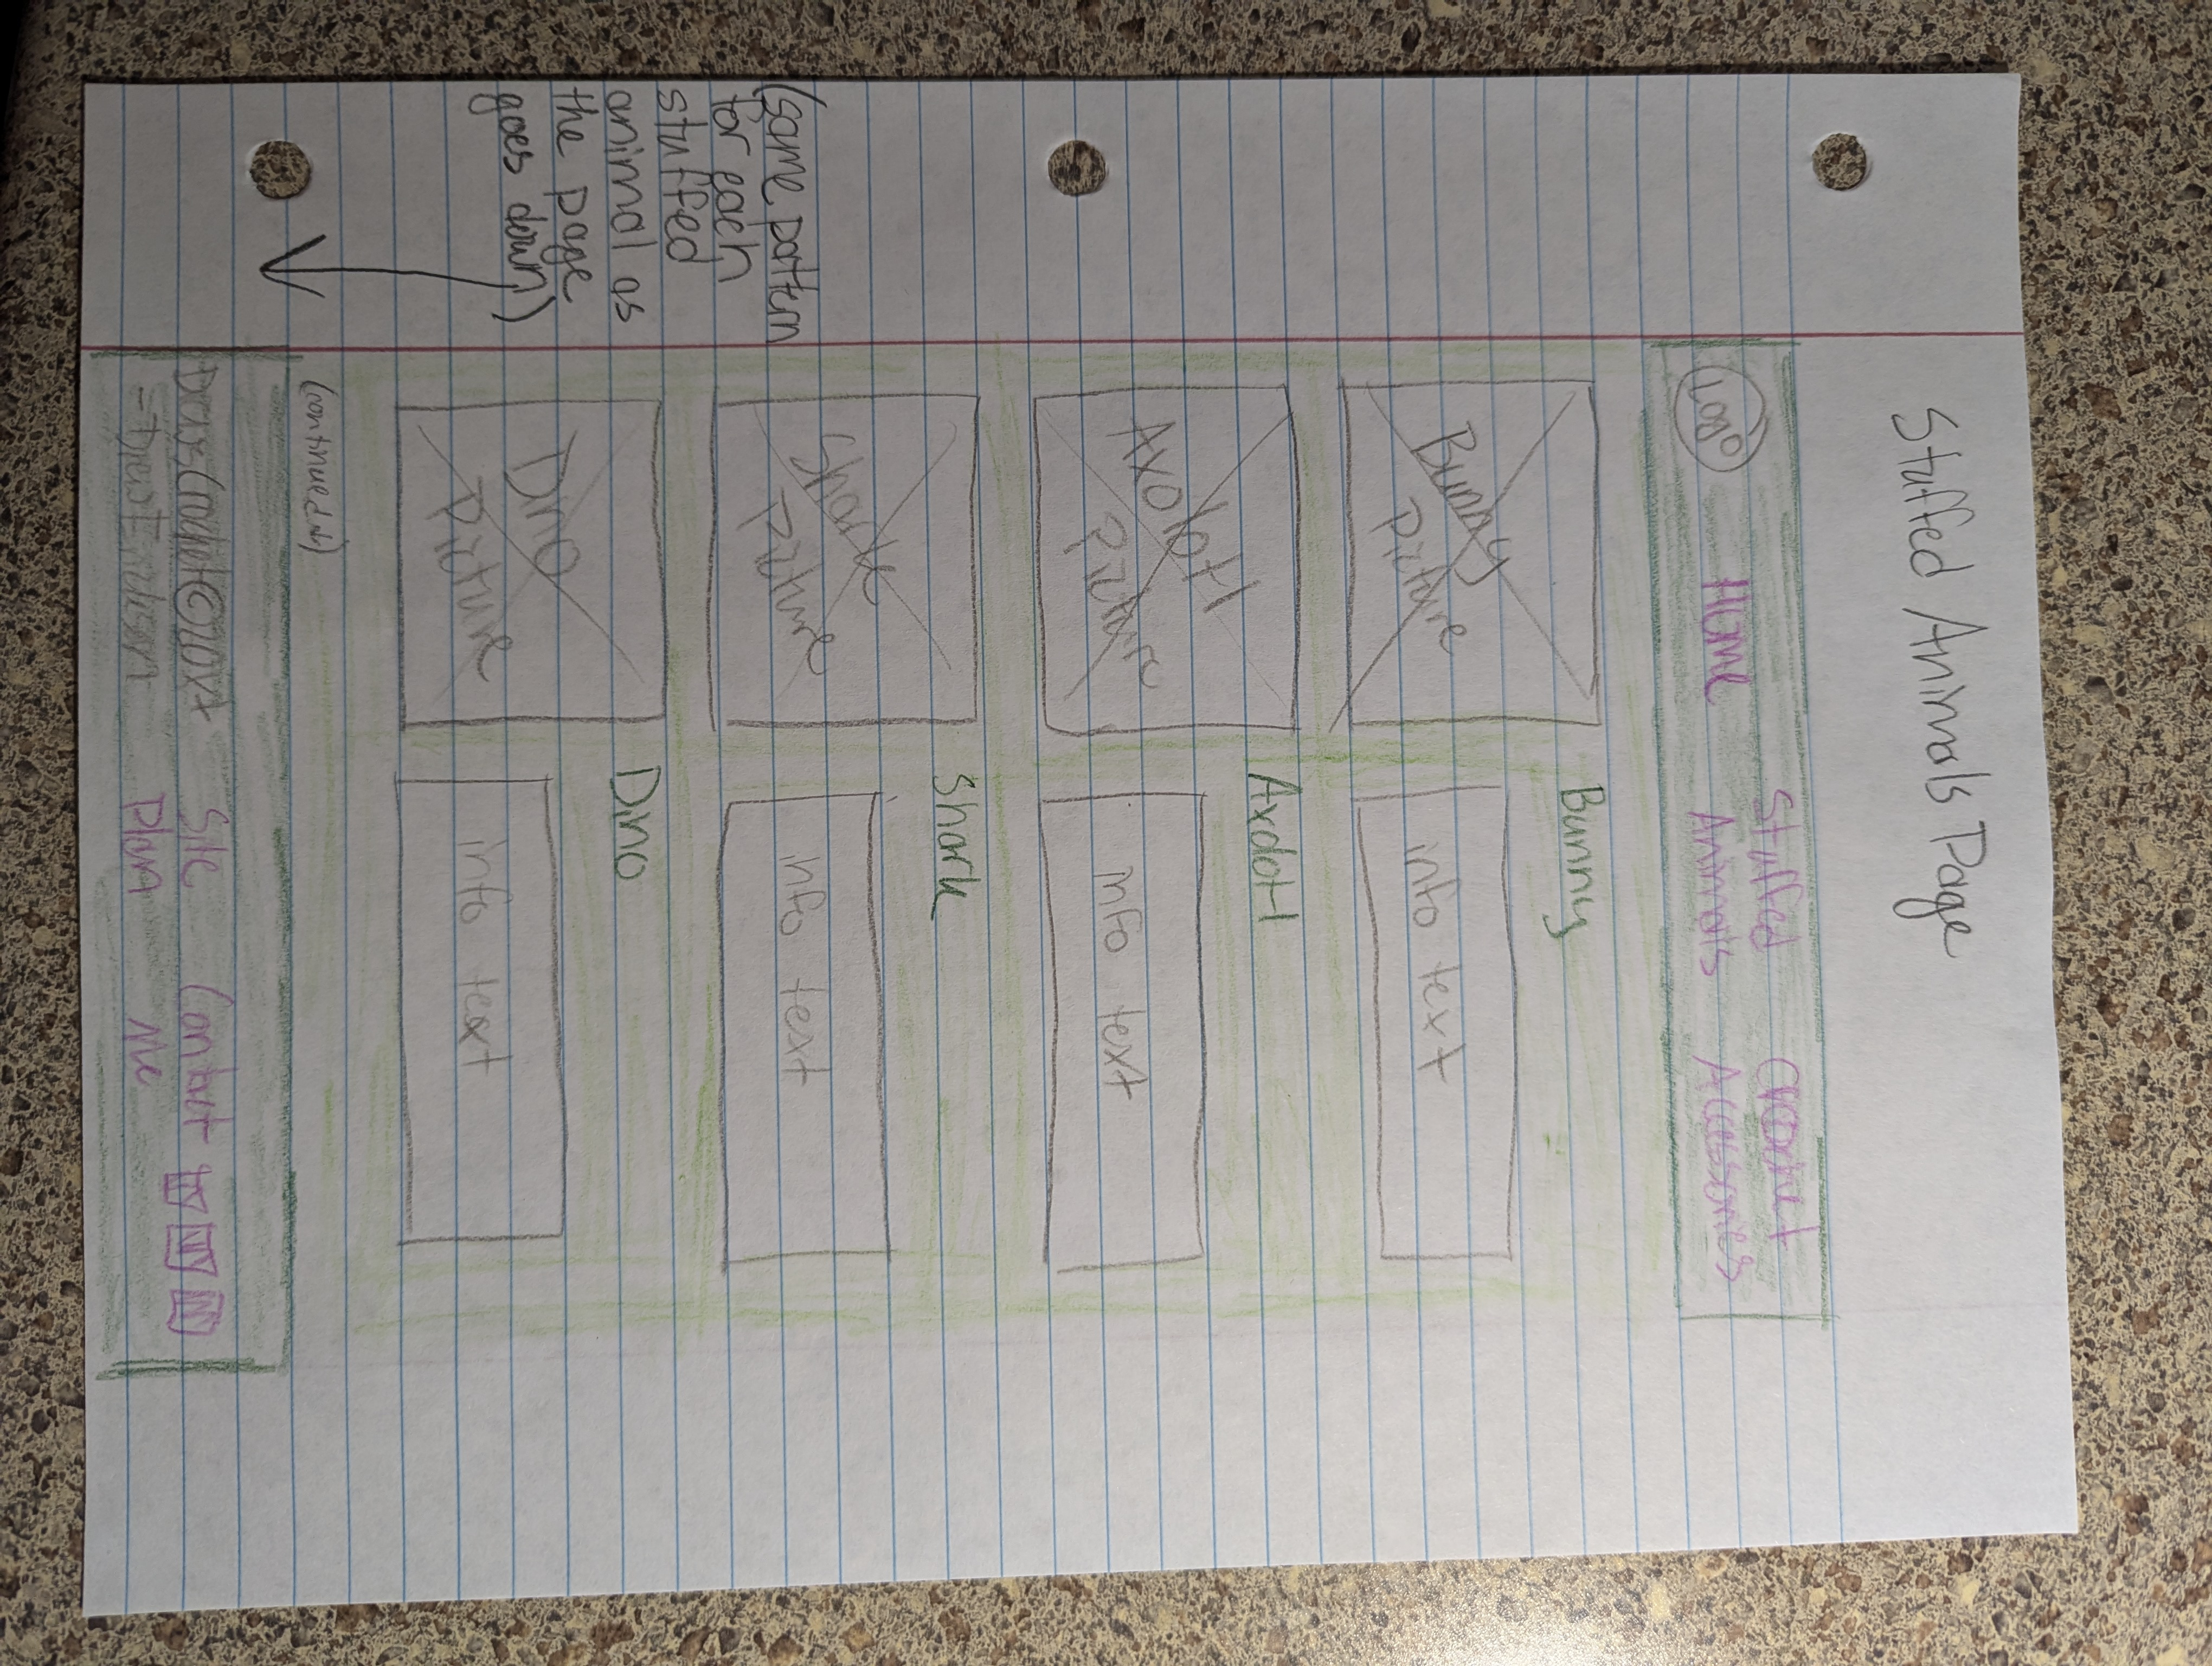 Stuffed Animals Page
Logo
Home
Stuffed
Animals
Crochet
Accessories
Bunny
Picture
Bunny
info text
Axolotl
Picture
Axolotl
info text
Shark
Picture
Shark
info text
(same pattern
for each
stuffed
animal as
the page
goes down)
Dino
Picture
Dino
info text
(continued ↓)
DrewsCrochet©20xx
- Drew Erickson
Site
Plan
Contact
Me